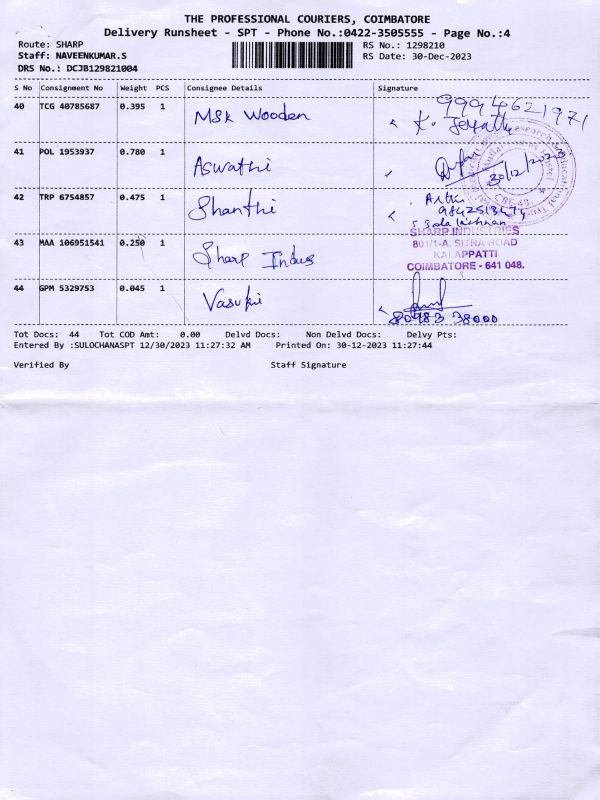 THE PROFESSIONAL COURIERS, COIMBATORE
Delivery Runsheet - SPT - Phone No.:0422-3505555 - Page No.:4
Route: SHARP
Staff: NAVEENKUMAR.S
DRS No.: DCJB129821004
RS No.: 1298210
RS Date: 30-Dec-2023
S No Consignment No Weight PCS Consignee Details Signature
40 TCG 40785687 0.395 1 MSK Wooden 9994621971
41 POL 1953937 0.780 1 Aswathi 30/12/2023
42 TRP 6754857 0.475 1 Shanthi
43 MAA 106951541 0.250 1 Sharp Indus
SHARP INDUSTRIES
801/1-A, SITRA ROAD
KALAPPATTI
COIMBATORE - 641 048.
44 GPM 5329753 0.045 1 Vasuki
80983 38000
Tot Docs: 44 Tot COD Amt: 0.00 Delvd Docs: Non Delvd Docs: Delvy Pts:
Entered By :SULOCHANASPT 12/30/2023 11:27:32 AM Printed On: 30-12-2023 11:27:44
Verified By Staff Signature